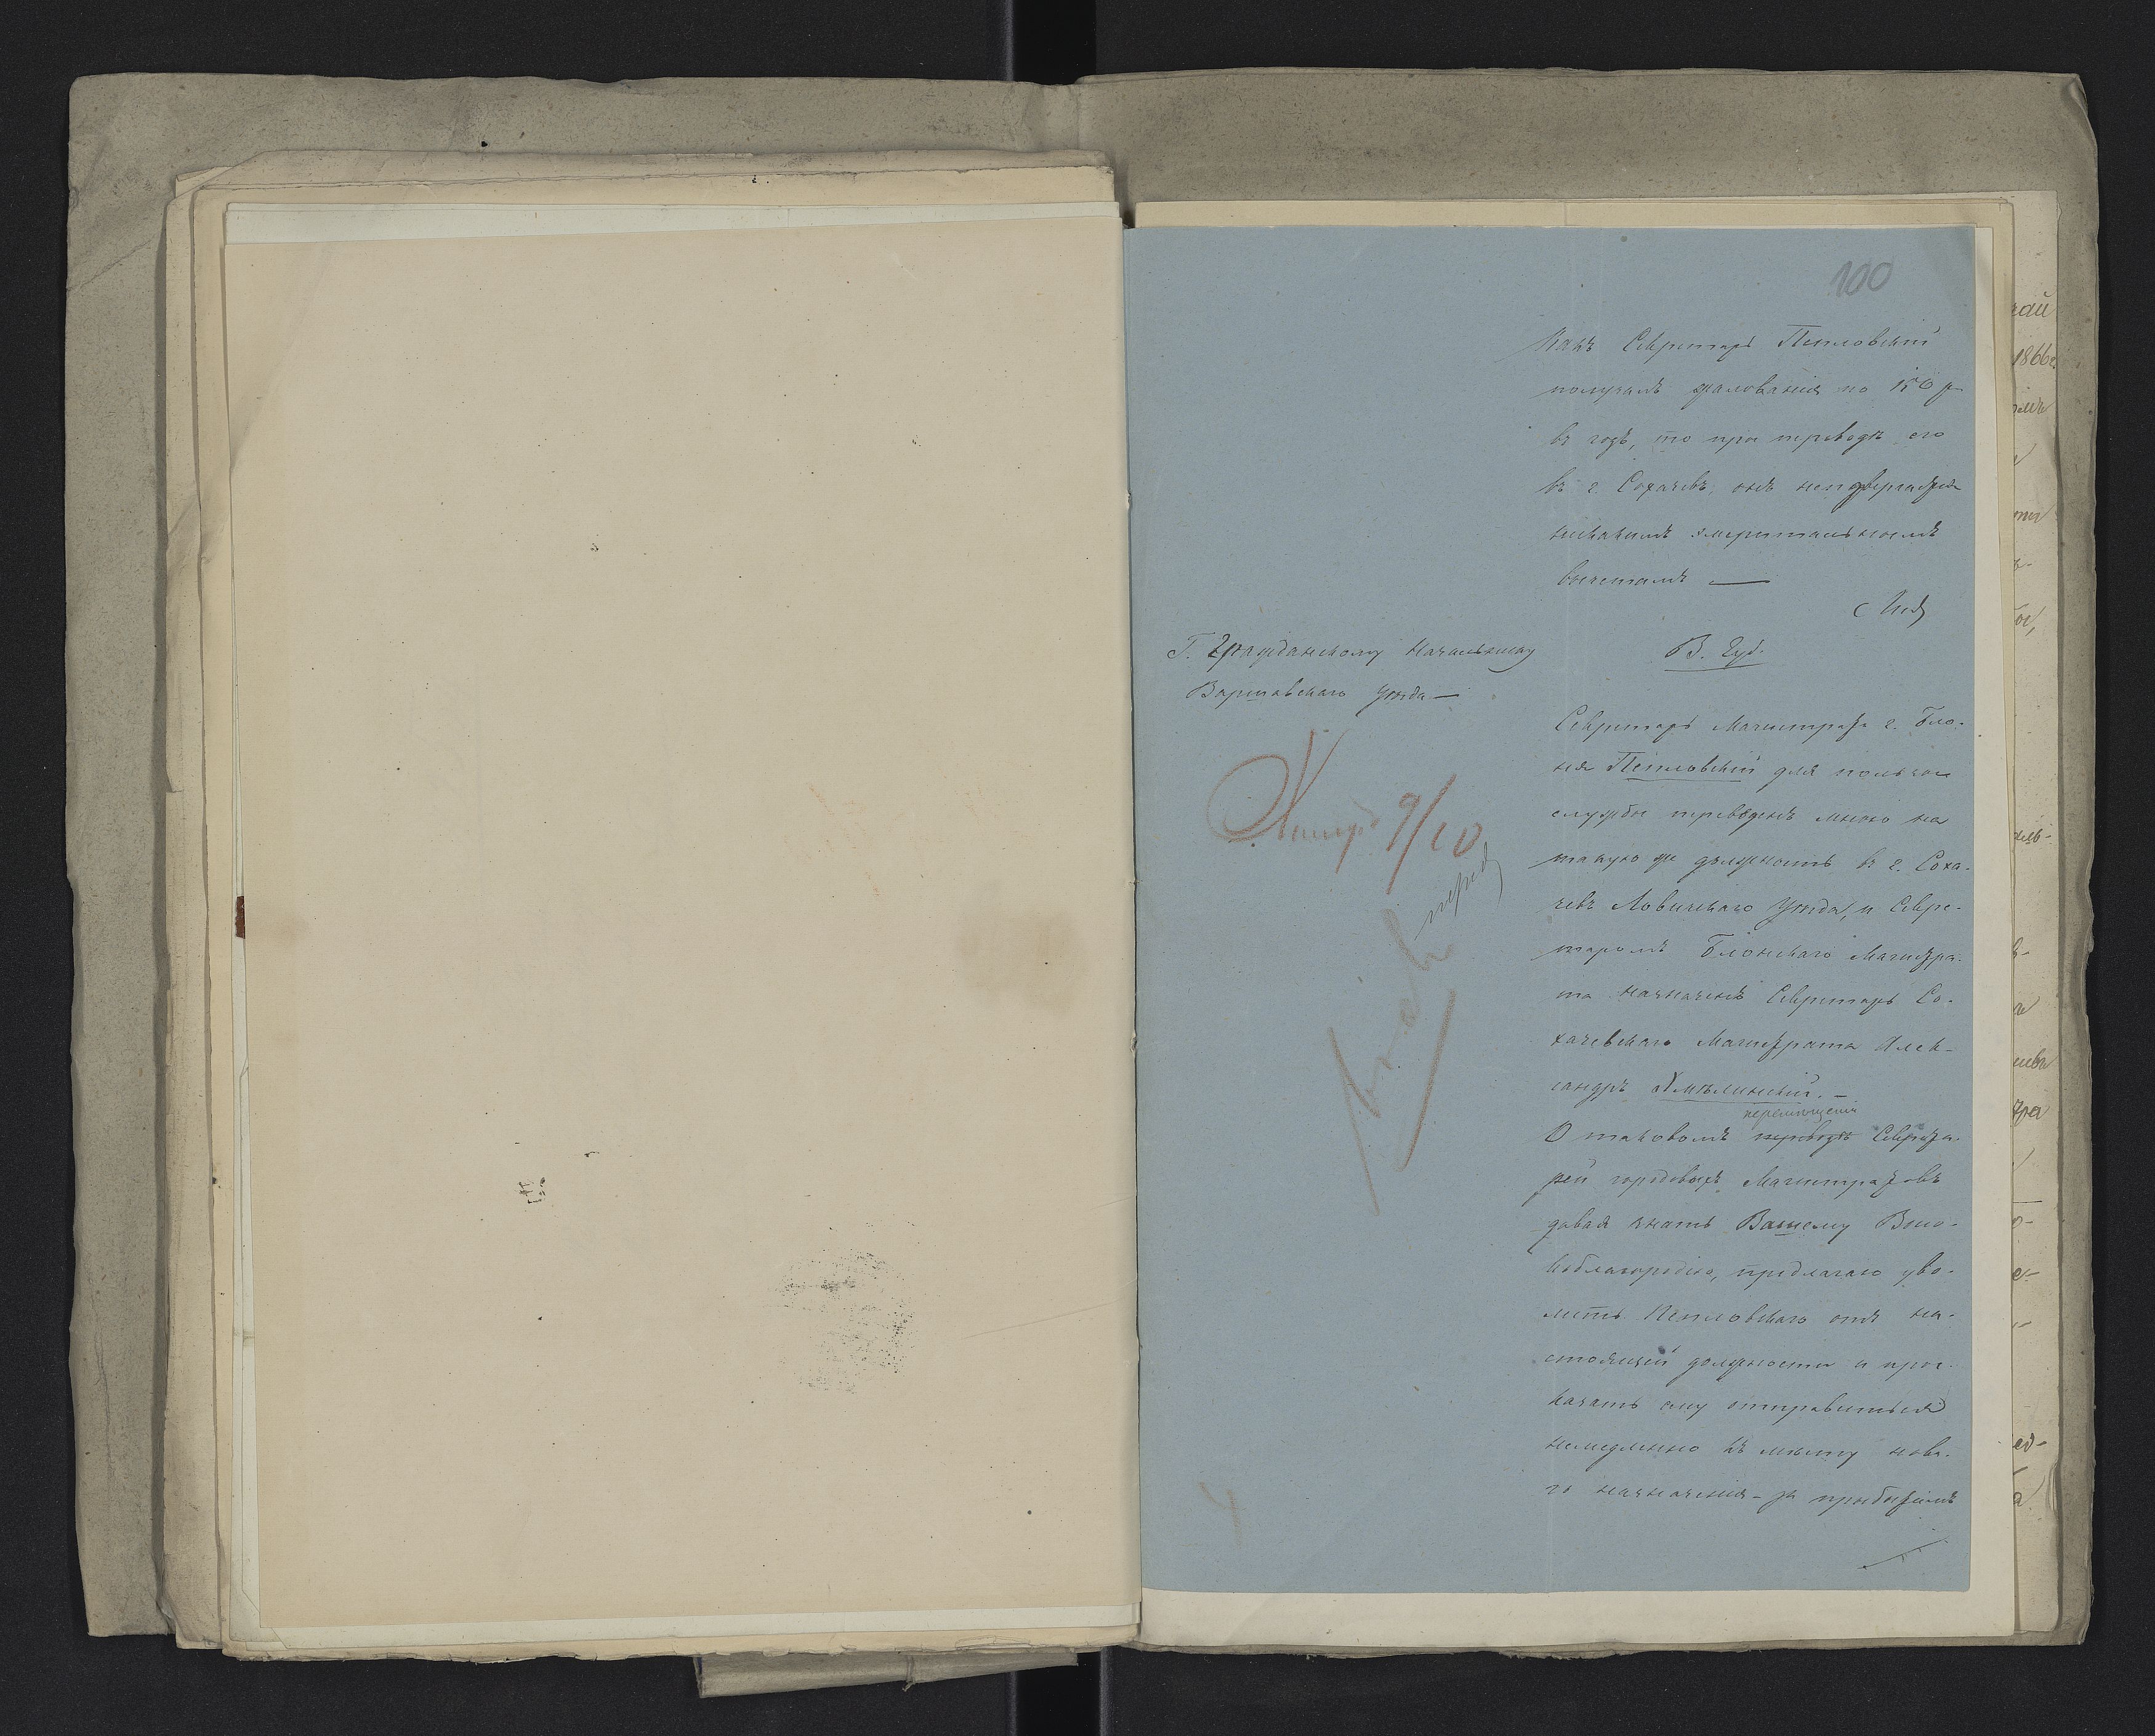 100
Какъ Секретарь Пепловскій
получалъ жалованія по 150 р
въ годъ, то при переводѣ его
въ г. Сохачевъ, онъ неподвергается
никакимъ эмеритальнымъ
вычетамъ —
Г. Гражданскому Начальнику
Варшавскаго Уѣзда —
В. Губ.
Секретарь Магистрата г. Бло-
ня Пепловскій для пользы
службы переведенъ мною на
такую же должность въ г. Соха-
чевъ Ловичскаго Уѣзда, и Секре-
таремъ Блонскаго Магистра-
та назначенъ Секретарь Со-
хачевскаго Магистрата Алек-
сандръ Хмѣлинскій. —
перемѣщеніи
О таковомъ переводѣ Секрета-
рей городовыхъ Магистратовъ
давая знать Вашему Высо-
коблагородію, предлагаю уво-
лить Пепловскаго отъ на-
стоящей должности и при-
казать ему отправиться
немедленно къ мѣсту нова-
го назначенія — за прибытіемъ
9/10